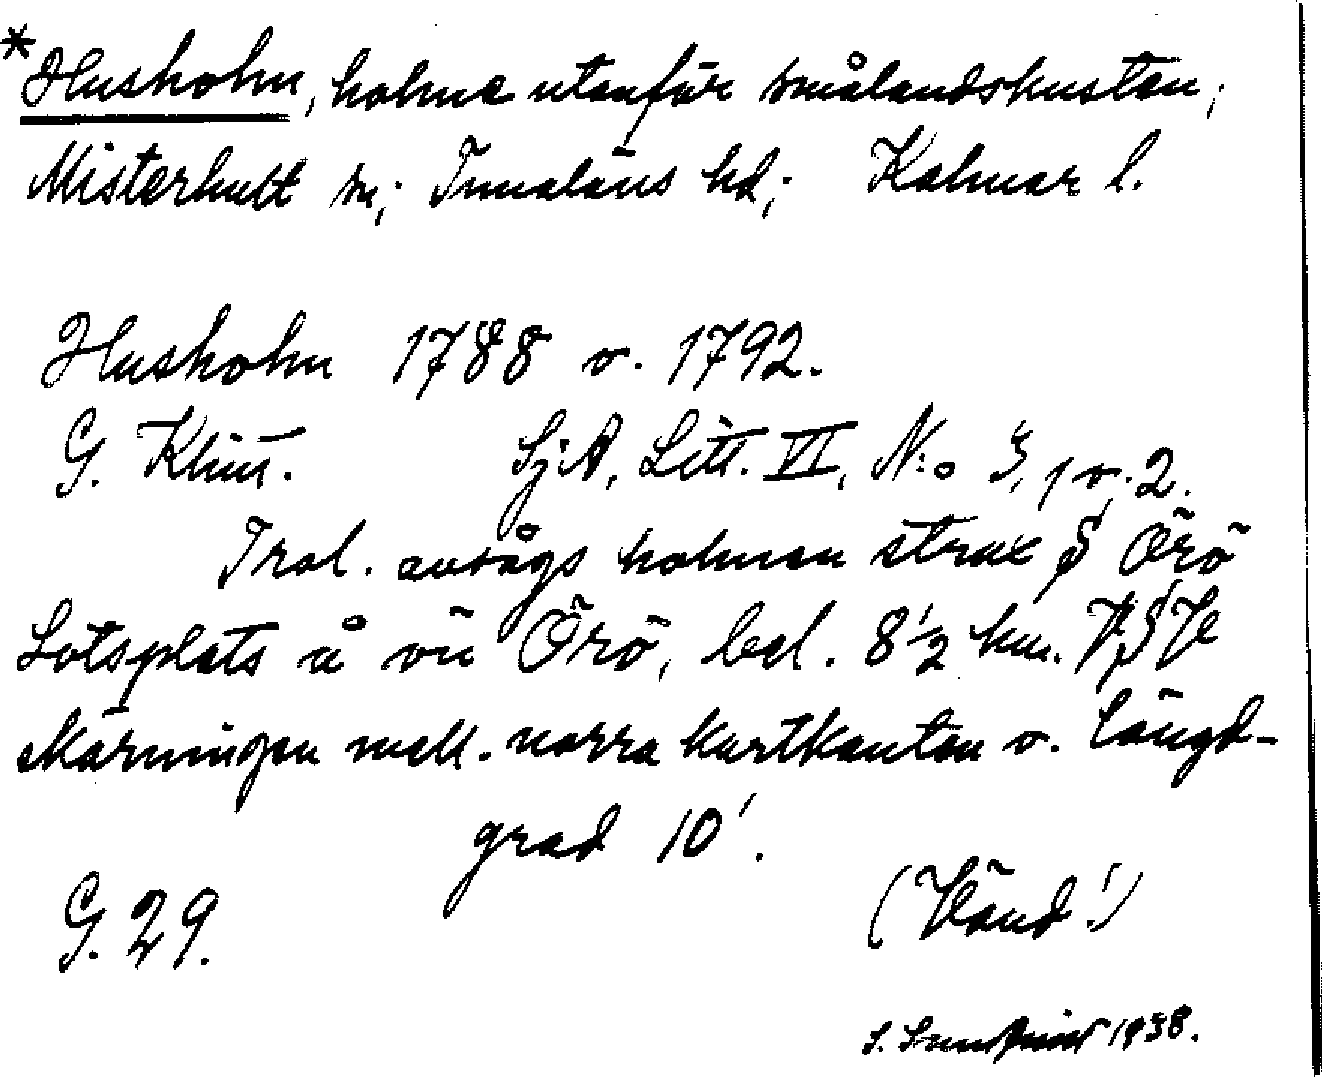 *Husholm, holme utanför smålandskusten;
Misterhult sn; Tunaläns hd; Kalmar l.
Husholm 1788 o. 1792.
G. Klint. SjA, Litt. VI, N:o 3, 1 o. 2.
Trol. avságs holmen strax S Örö
Lotsplats å ön Örö, bel. 8½ km. VSV
skärningen mell. norra kartkanten o. längd-
grad 10'.
G. 29.
(Vänd!)
S. 1938.